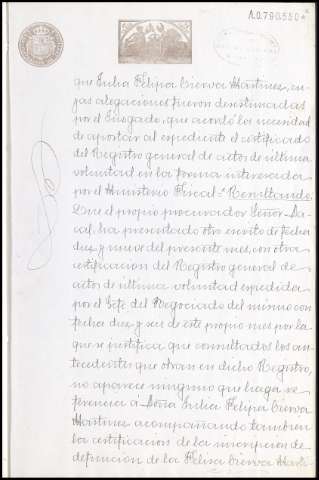 A.0.790.550*
que Julia Felipa Cierva Martinez, cu-
yas alegaciones fueron desestimadas
por el Juzgado, que acordó la necesidad
de aportar al expediente el certificado
del Registro general de actos de última
voluntad en la forma interesada
por el Ministerio Fiscal = Resultando:
Que el propio procurador Señor
ha presentado otro escrito de fecha
diez y nueve del presente mes, con otra
certificacion del Registro general de
actos de última voluntad expedida
por el Jefe del Negociado del mismo con
fecha diez y seis de este propio mes por la
que se justifica que consultados los an-
tecedentes que obran en dicho Registro,
no aparece ninguno que haga re-
ferencia á Doña Julia Felipa Cierva
Martinez acompañando tambien
la certificacion de la inscripcion de
defuncion de la Felisa Cierva Marti-